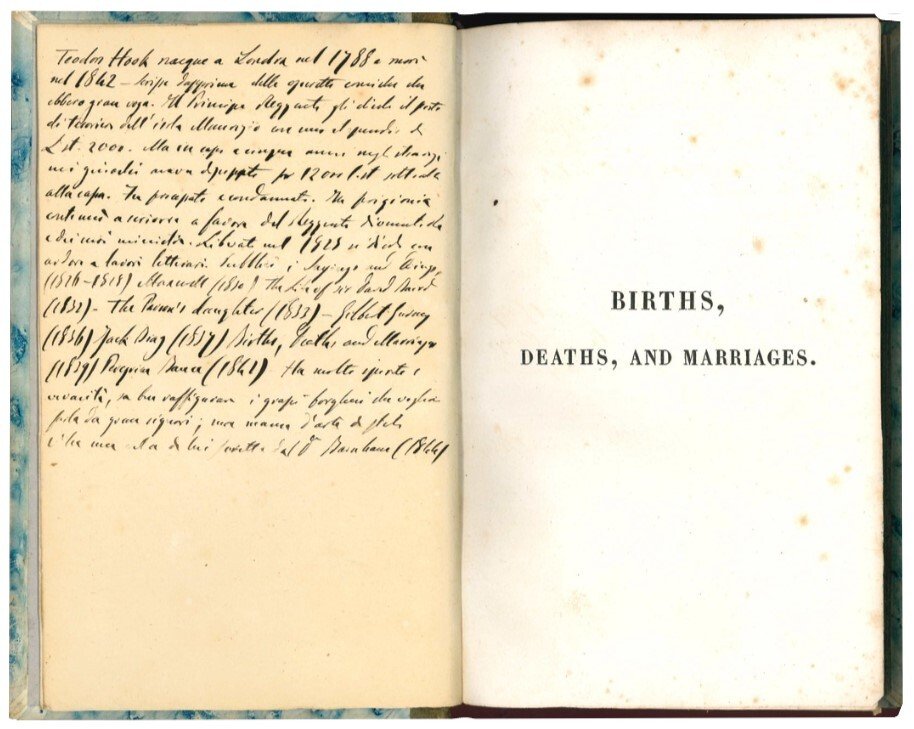 Teodor Hook nacque a Londra nel 1788 e morì
nel 1842 – scrisse dapprima delle operette comiche che
ebbero gran voga. Il Principe Reggente gli diede il posto
di tesoriere dell'isola Maurizio con uno stipendio di
Lst. 2000. Ma in capo a cinque anni
12000 Lst sottratte
alla cassa. Fu processato e condannato. In prigionia
continuò a scrivere a favore del Reggente divenuto Re
e dei suoi ministri. Liberato nel 1825 si diede con
ardore a lavori letterari. Pubblicò i Sayings and Doings,
(1826–1828) Maxwell (1830) The Life of sir David Baird
(1832) – The Parson's daughter (1833) – Gilbert Gurney
(1836) Jack Brag (1837) Births, Deaths and Marriages
(1839) Peregrine Bunce (1841) Ha molto spirito e
vivacità, sa ben raffigurare i grassi borghesi che voglion
farla da gran signori; ma manca d'arte e di stile
(1844)
BIRTHS,
DEATHS, AND MARRIAGES.